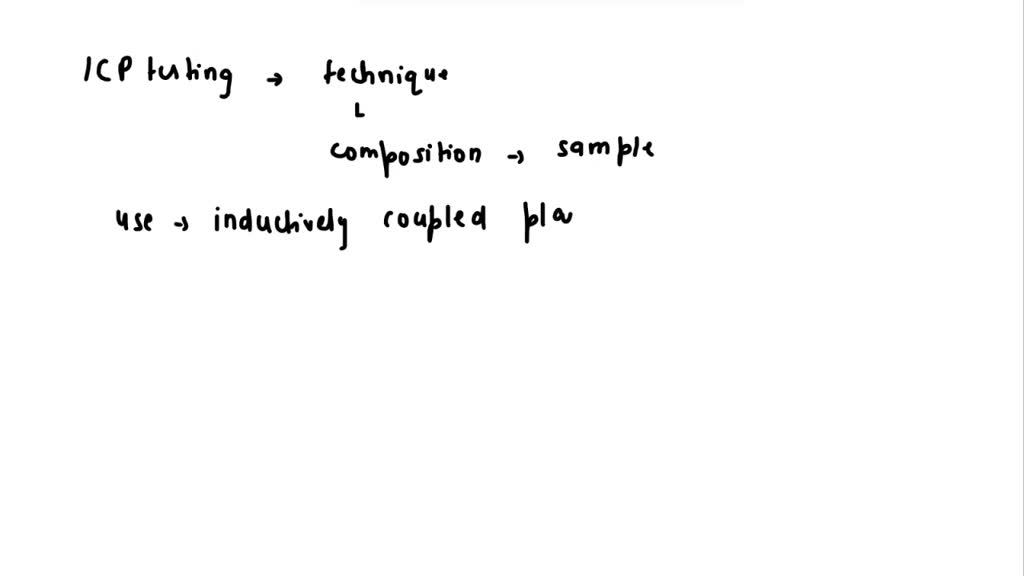 ICP testing → technique
↳
composition → sample
use → inductively coupled pla